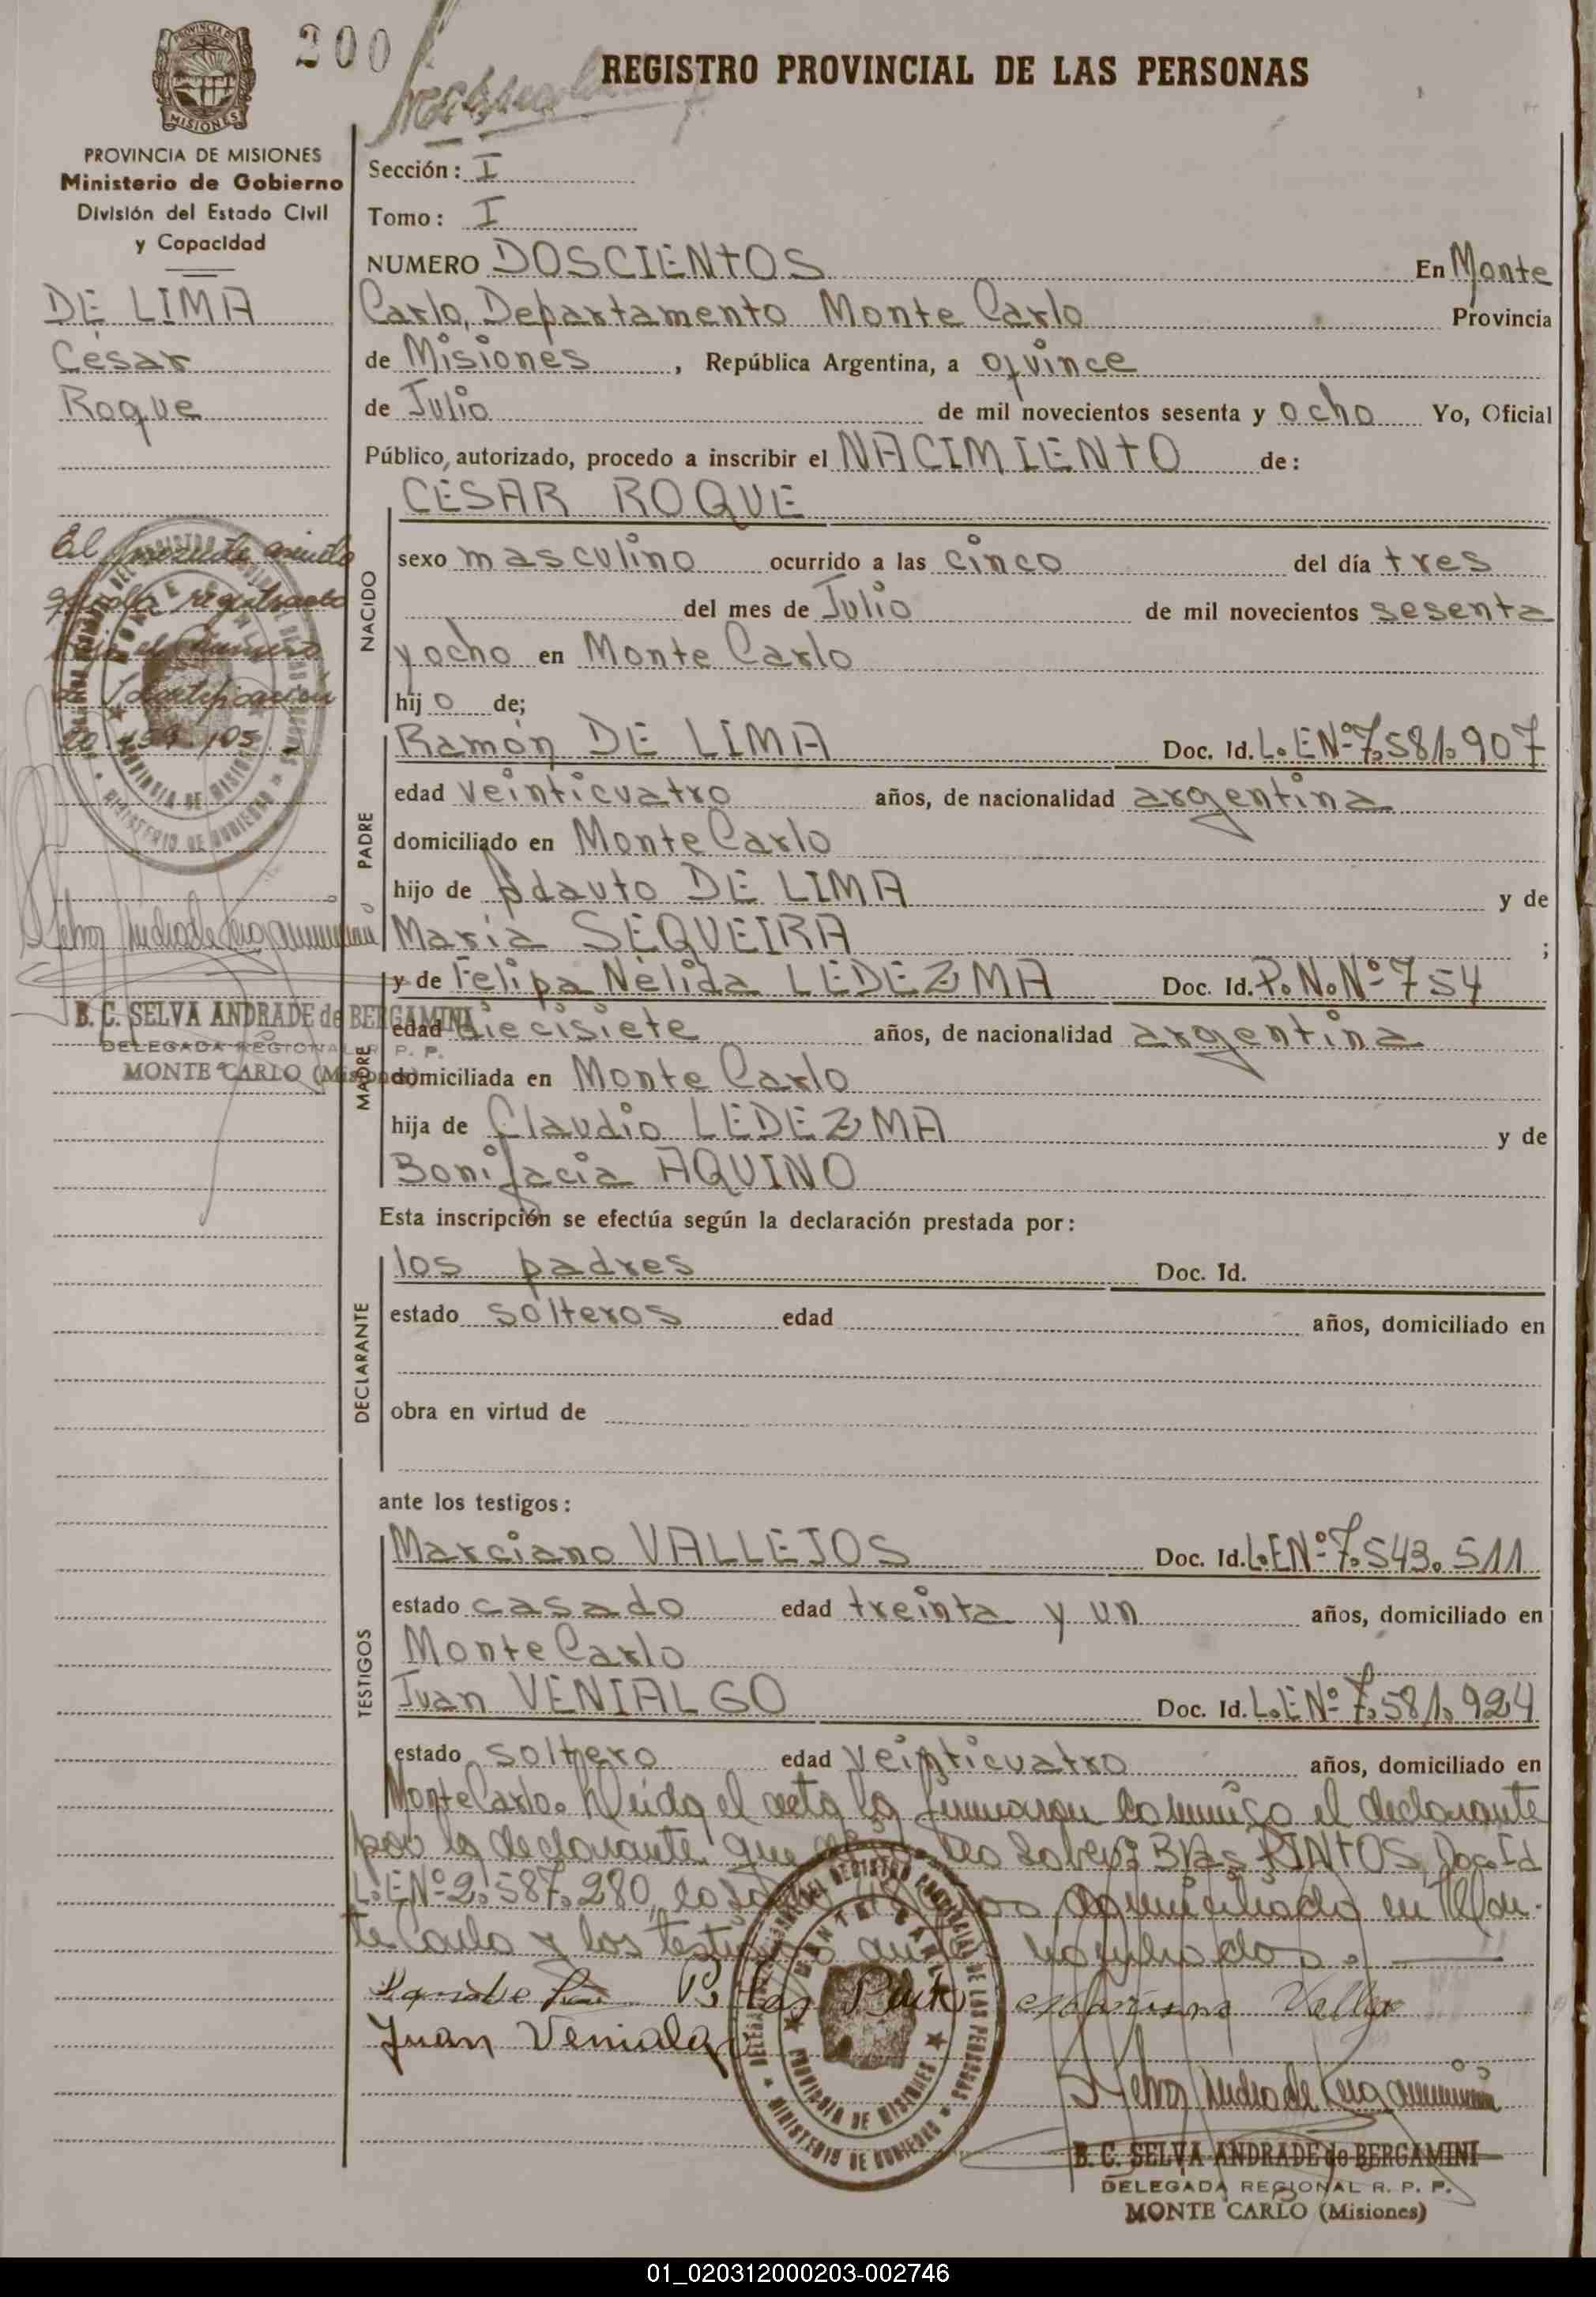 200
REGISTRO PROVINCIAL DE LAS PERSONAS
PROVINCIA DE
MISIONES
PROVINCIA DE MISIONES
Ministerio de Gobierno
División del Estado Civil
y Capacidad
DE LIMA
César
Roque
El presente asiento
queda registrado
bajo el número
de Identificación
B. C. SELVA ANDRADE de BERGAMINI
DELEGADA REGIONAL R. P. P.
MONTE CARLO (Misiones)
Sección: I
Tomo: I
NUMERO DOSCIENTOS En Monte
Carlo, Departamento Monte Carlo Provincia
de Misiones, República Argentina, a quince
de Julio de mil novecientos sesenta y ocho Yo, Oficial
Público, autorizado, procedo a inscribir el NACIMIENTO de:
CÉSAR ROQUE
NACIDO
sexo masculino ocurrido a las cinco del día tres
del mes de Julio de mil novecientos sesenta
y ocho en Monte Carlo
hijo de;
PADRE
Ramón DE LIMA Doc. Id. L.E.Nº 7.581.907
edad veinticuatro años, de nacionalidad argentina
domiciliado en Monte Carlo
hijo de Adauto DE LIMA y de
María SEQUEIRA ;
MADRE
y de Felipa Nélida LEDEZMA Doc. Id. P.N.Nº 754
edad diecisiete años, de nacionalidad argentina
domiciliada en Monte Carlo
hija de Claudio LEDEZMA y de
Bonifacia AQUINO
Esta inscripción se efectúa según la declaración prestada por:
DECLARANTE
los padres Doc. Id.
estado solteros edad años, domiciliado en
obra en virtud de
ante los testigos:
TESTIGOS
Marciano VALLEJOS Doc. Id. L.E.Nº 7.543.511
estado casado edad treinta y un años, domiciliado en
Monte Carlo
Juan VENIALGO Doc. Id. L.E.Nº 7.581.924
estado soltero edad veinticuatro años, domiciliado en
Monte Carlo. Leída el acta la firmaron conmigo el declarante
por la declarante que no saber: Blas PINTOS, Doc. Id
L.E.Nº 2.587.280, domiciliado en Mon-
te Carlo y los testigos nombrados.
Juan Venialgo
B. C. SELVA ANDRADE de BERGAMINI
DELEGADA REGIONAL R. P. P.
MONTE CARLO (Misiones)
01_020312000203-002746